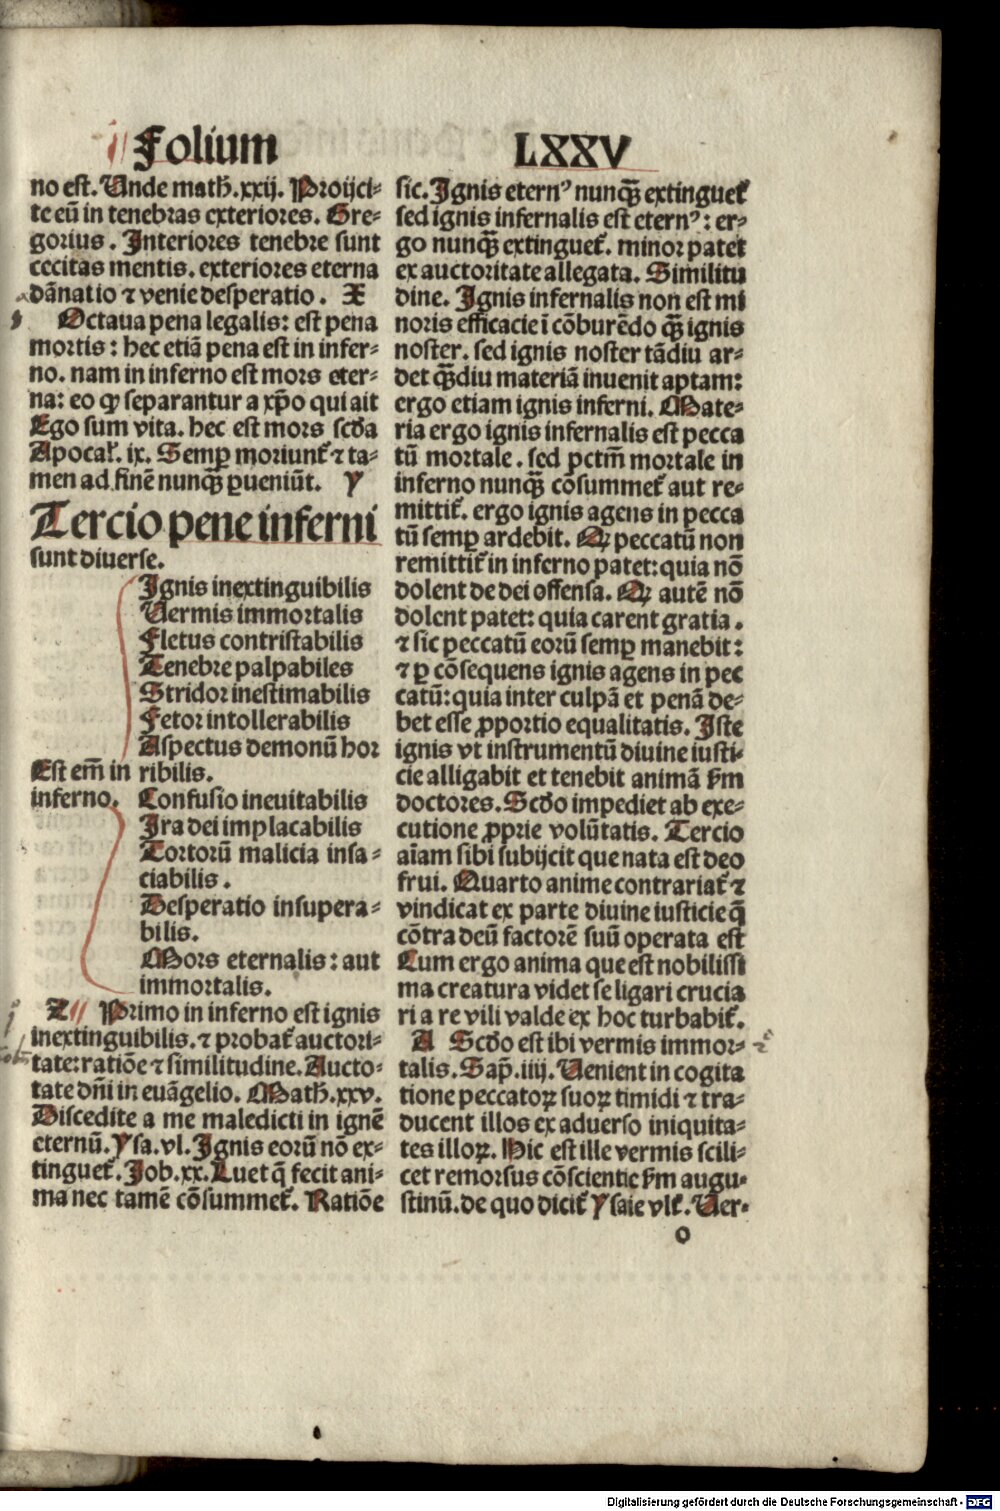 Folium LXXV
no est. Unde math̄.xxij. Proijci-
te eū in tenebras exteriores. Gre-
gorius. Interiores tenebre sunt
cecitas mentis. exteriores eterna
dānatio ⁊ venie desperatio. X
Octaua pena legalis: est pena
mortis: hec etiā pena est in infer-
no. nam in inferno est mors eter-
na: eo ꝙ separantur a xp̄o qui ait
Ego sum vita. hec est mors scd̄a
Apocal̄. ix. Semꝑ moriunt̄ ⁊ ta-
men ad finē nunqꝫ ꝑueniūt. Y
Tercio pene inferni
sunt diuerse.
Ignis inextinguibilis
Uermis immortalis
Fletus contristabilis
Tenebre palpabiles
Stridor inestimabilis
Fetor intollerabilis
Aspectus demonū hor
Est em̄ in ribilis.
inferno. Confusio ineuitabilis
Ira dei implacabilis
Tortorū malicia insa-
ciabilis.
Desperatio insupera-
bilis.
Mors eternalis: aut
immortalis.
Z Primo in inferno est ignis
inextinguibilis. ⁊ probat̄ auctori-
tate: ratiōe ⁊ similitudine. Aucto-
tate dn̄i in euāgelio. Math̄.xxv.
Discedite a me maledicti in ignē
eternū. Ysa.vl. Ignis eorū nō ex-
tinguet̄. Job.xx. Luet q̄ fecit ani-
ma nec tamē cōsummet̄. Ratiōe
sic. Ignis eternꝰ nunqꝫ extinguet̄
sed ignis infernalis est eternꝰ: er-
go nunqꝫ extinguet̄. minor patet
ex auctoritate allegata. Similitu
dine. Ignis infernalis non est mi
noris efficacie ī cōburēdo qꝫ ignis
noster. sed ignis noster tādiu ar-
det qꝫdiu materiā inuenit aptam:
ergo etiam ignis inferni. Mate-
ria ergo ignis infernalis est pecca
tū mortale. sed pctm̄ mortale in
inferno nunqꝫ cōsummet̄ aut re-
mittit̄. ergo ignis agens in pecca
tū semꝑ ardebit. Qꝫ peccatū non
remittit̄ in inferno patet: quia nō
dolent de dei offensa. Qꝫ autē nō
dolent patet: quia carent gratia.
⁊ sic peccatū eorū semꝑ manebit:
⁊ ꝑ cōsequens ignis agens in pec
catū: quia inter culpā et penā de-
bet esse ꝓportio equalitatis. Iste
ignis vt instrumentū diuine iusti-
cie alligabit et tenebit animā s̄m
doctores. Scd̄o impediet ab exe-
cutione ꝓprie volūtatis. Tercio
aīam sibi subijcit que nata est deo
frui. Quarto anime contrariat̄ ⁊
vindicat ex parte diuine iusticie q̄
cōtra deū factorē suū operata est
Cum ergo anima que est nobilissi
ma creatura videt se ligari crucia
ri a re vili valde ex hoc turbabit̄.
A Scd̄o est ibi vermis immor-
talis. Sap̄. iiij. Uenient in cogita
tione peccatoꝝ suoꝝ timidi ⁊ tra-
ducent illos ex aduerso iniquita-
tes illoꝝ. Hic est ille vermis scili-
cet remorsus cōscientie s̄m augu-
stinū. de quo dicit̄ Ysaie vlt̄. Uer-
o
Digitalisierung gefördert durch die Deutsche Forschungsgemeinschaft - DFG